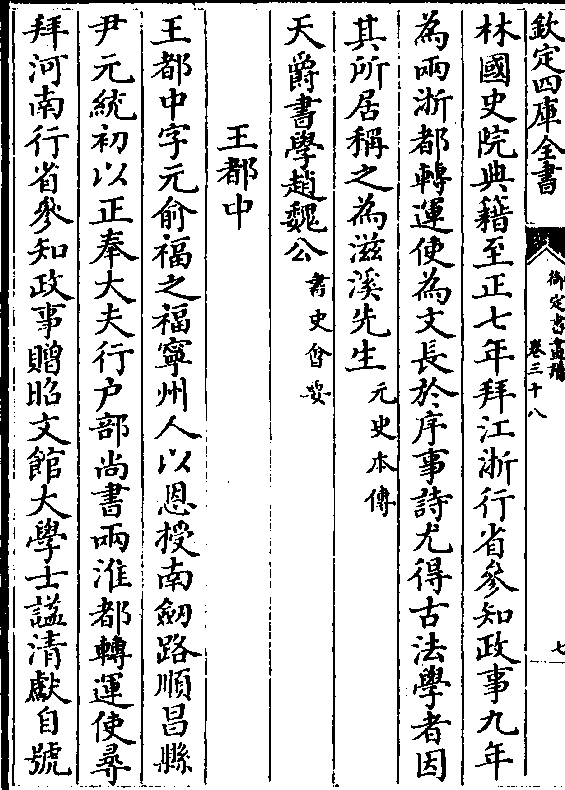 欽定四庫全書
御定書畫譜
卷三十八
七
林國史院典籍至正七年拜江浙行省參知政事九年
為兩浙都轉運使為文長於序事詩尤得古法學者因
其所居稱之為滋溪先生元史本傳
天爵書學趙魏公書史會要
王都中
王都中字元俞福之福寧州人以恩授南劒路順昌縣
尹元統初以正奉大夫行户部尚書兩淮都轉運使尋
拜河南行省參知政事贈昭文館大學士諡清獻自號